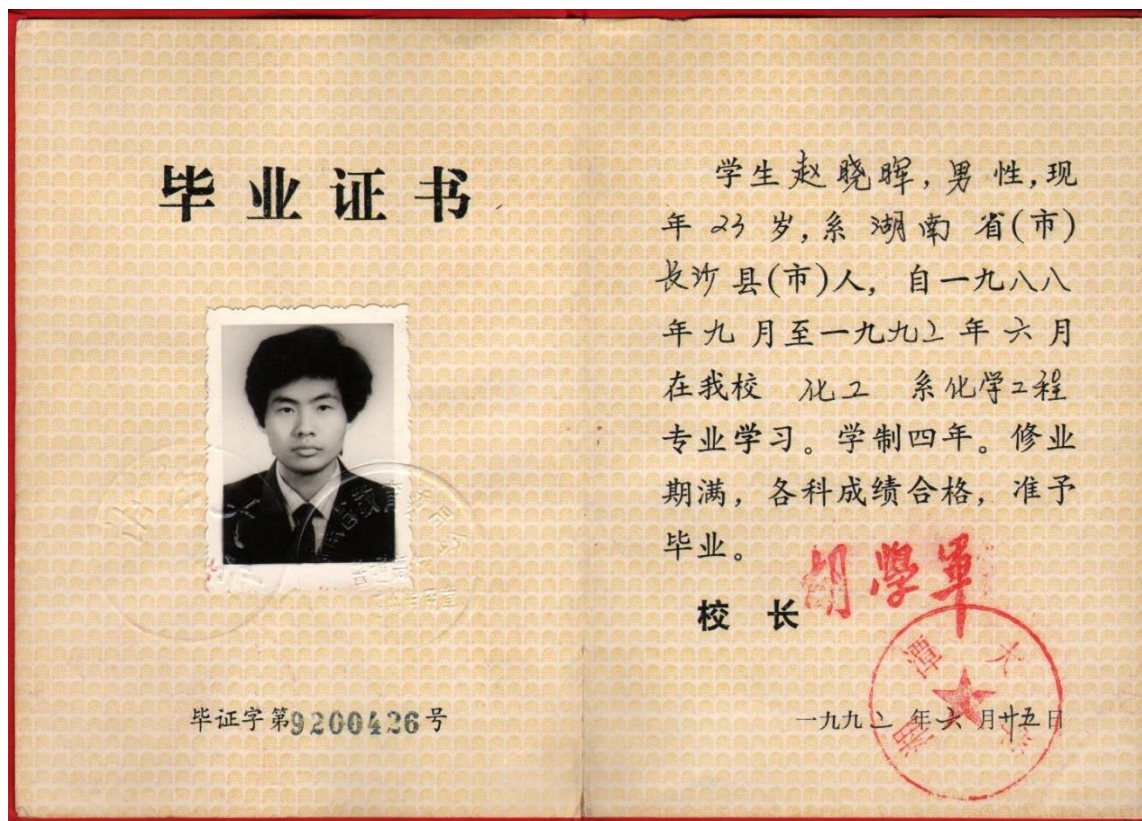 毕业证书
毕证字第9200426号
学生赵晓晖,男性,现
年23岁,系湖南省(市)
长沙县(市)人,自一九八八
年九月至一九九二年六月
在我校 化工 系化学工程
专业学习。学制四年。修业
期满,各科成绩合格,准予
毕业。
校长 胡學軍
湘潭大学
一九九二年六月廿五日